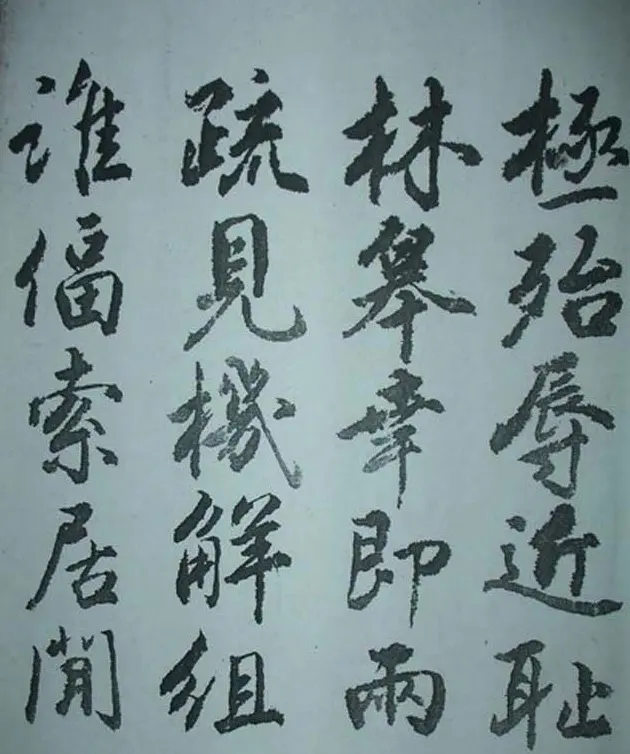 極殆辱近耻
林皐幸即兩
疏見機解組
誰偪索居閒